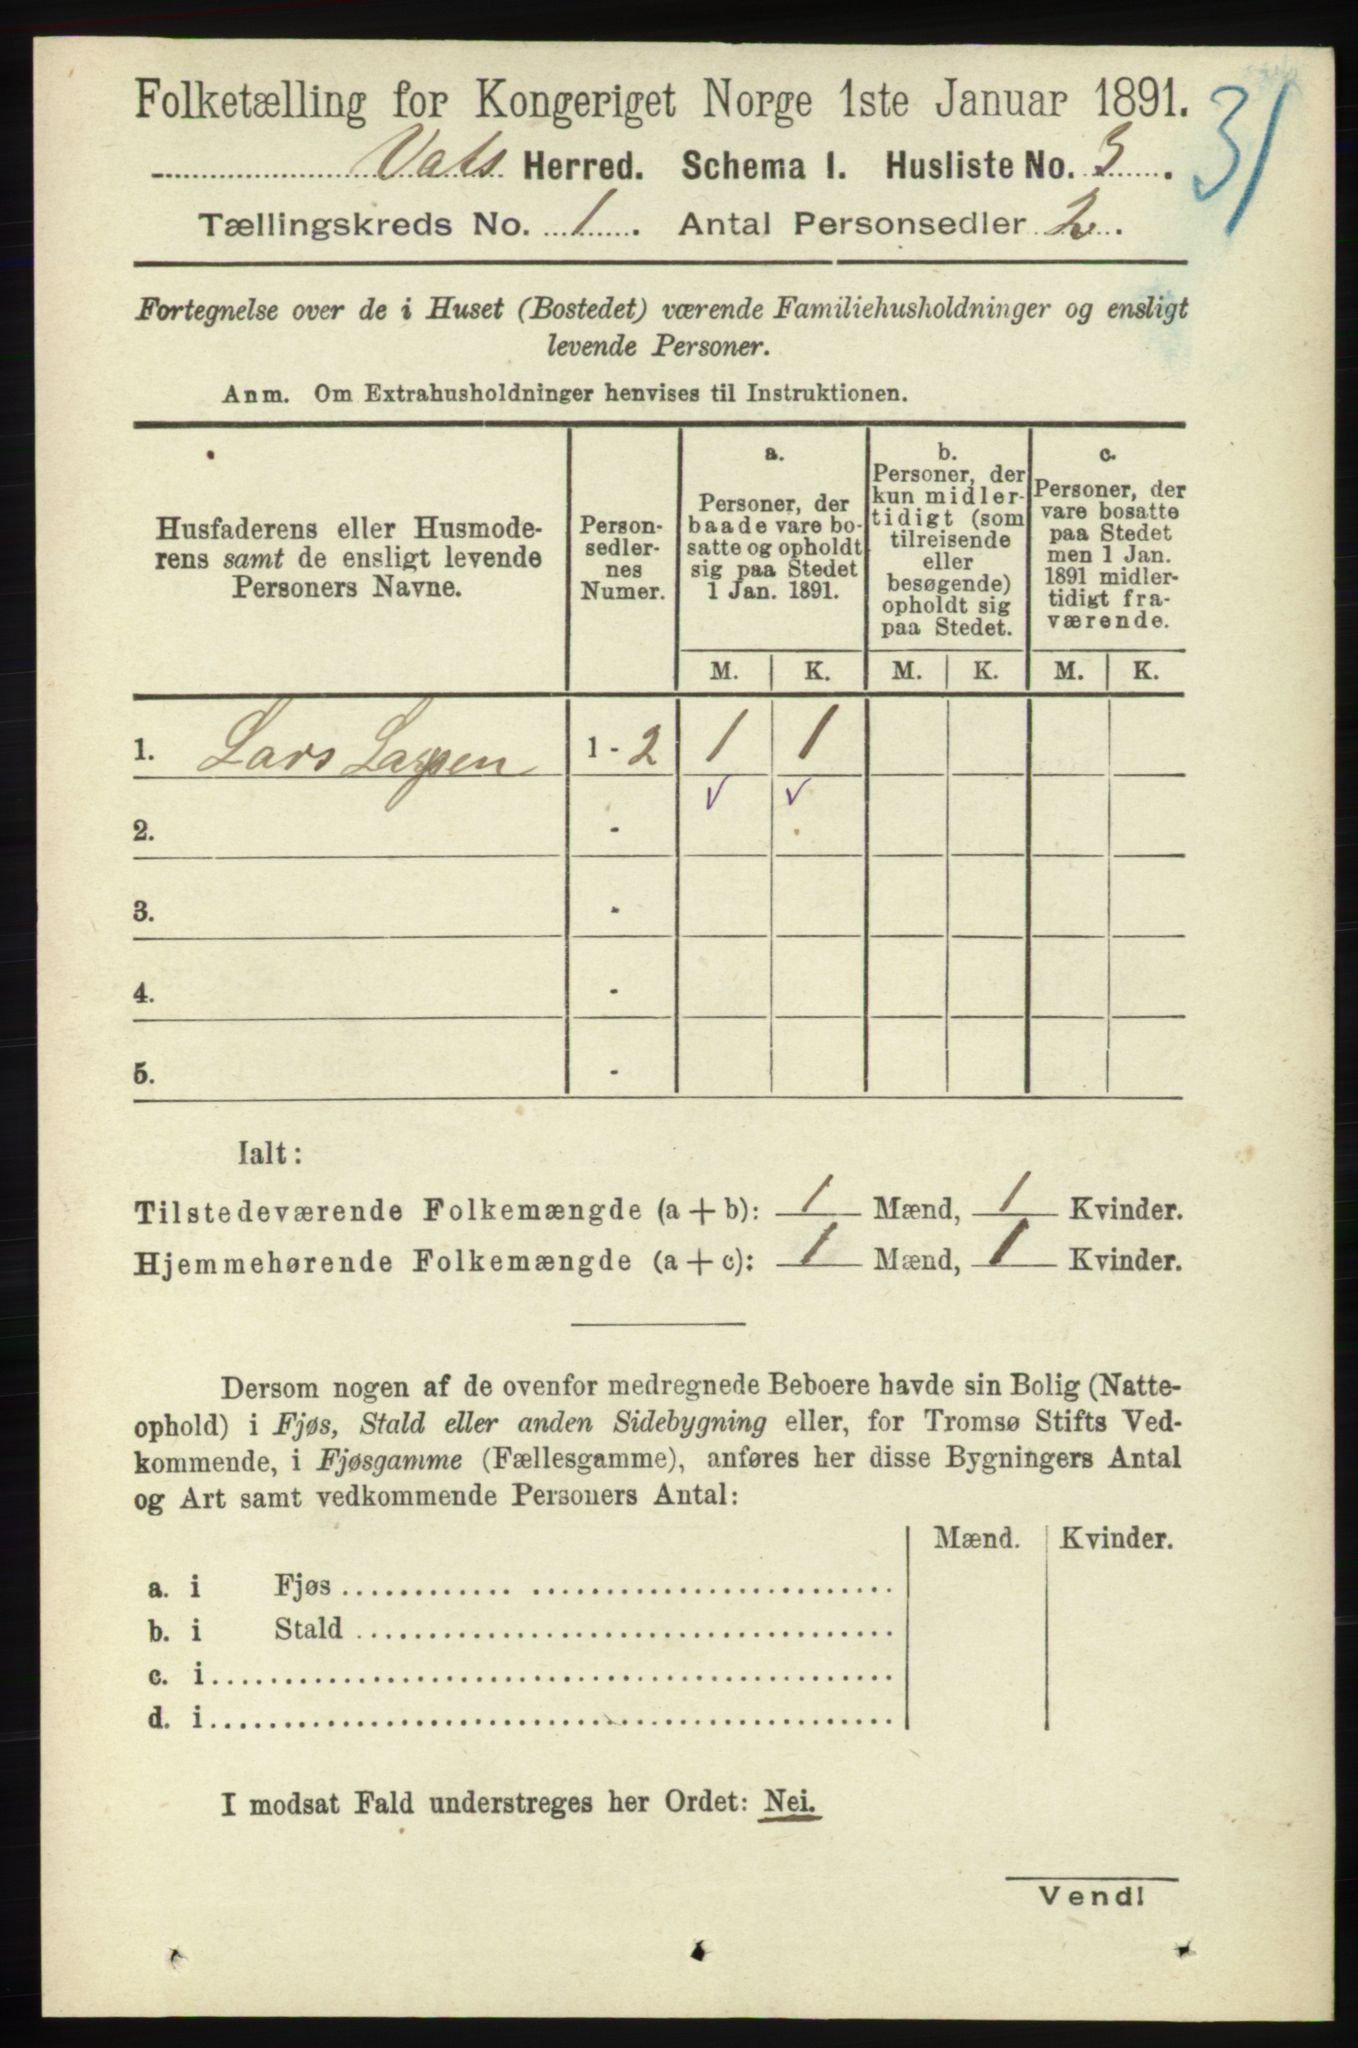 Folketælling for Kongeriget Norge 1ste Januar 1891.
31
Vats Herred. Schema I. Husliste No. 3.
Tællingskreds No. 1. Antal Personsedler 2.
Fortegnelse over de i Huset (Bostedet) værende Familiehusholdninger og ensligt
levende Personer.
Anm. Om Extrahusholdninger henvises til Instruktionen.
Husfaderens eller Husmode-
rens samt de ensligt levende
Personers Navne.
Person-
sedler-
nes
Numer.
a.
Personer, der
baade vare bo-
satte og opholdt
sig paa Stedet
1 Jan. 1891.
b.
Personer, der
kun midler-
tidigt (som
tilreisende
eller
besøgende)
opholdt sig
paa Stedet.
c.
Personer, der
vare bosatte
paa Stedet
men 1 Jan.
1891 midler-
tidigt fra-
værende.
M. K. M. K. M. K.
1. Lars Larsen 1 - 2 1 1
2. -
3. -
4. -
5. -
Ialt:
Tilstedeværende Folkemængde (a + b): 1 Mænd, 1 Kvinder.
Hjemmehørende Folkemængde (a + c): 1 Mænd, 1 Kvinder.
Dersom nogen af de ovenfor medregnede Beboere havde sin Bolig (Natte-
ophold) i Fjøs, Stald eller anden Sidebygning eller, for Tromsø Stifts Ved-
kommende, i Fjøsgamme (Fællesgamme), anføres her disse Bygningers Antal
og Art samt vedkommende Personers Antal:
Mænd. Kvinder.
a. i Fjøs
b. i Stald
c. i
d. i
I modsat Fald understreges her Ordet: Nei.
Vend!